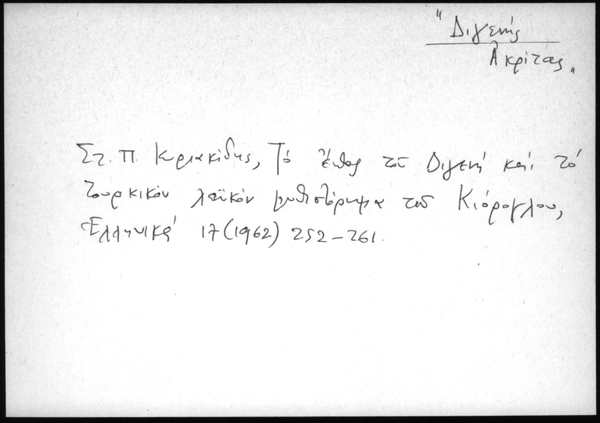 "Διγενής
Ακρίτας"
Στ. Π. Κυριακίδης, Τό ἔπος τοῦ Διγενῆ καί τό
τουρκικόν λαϊκόν μυθιστόρημα τοῦ Κιόρογλου,
Ἑλληνικά 17 (1962) 252-261.